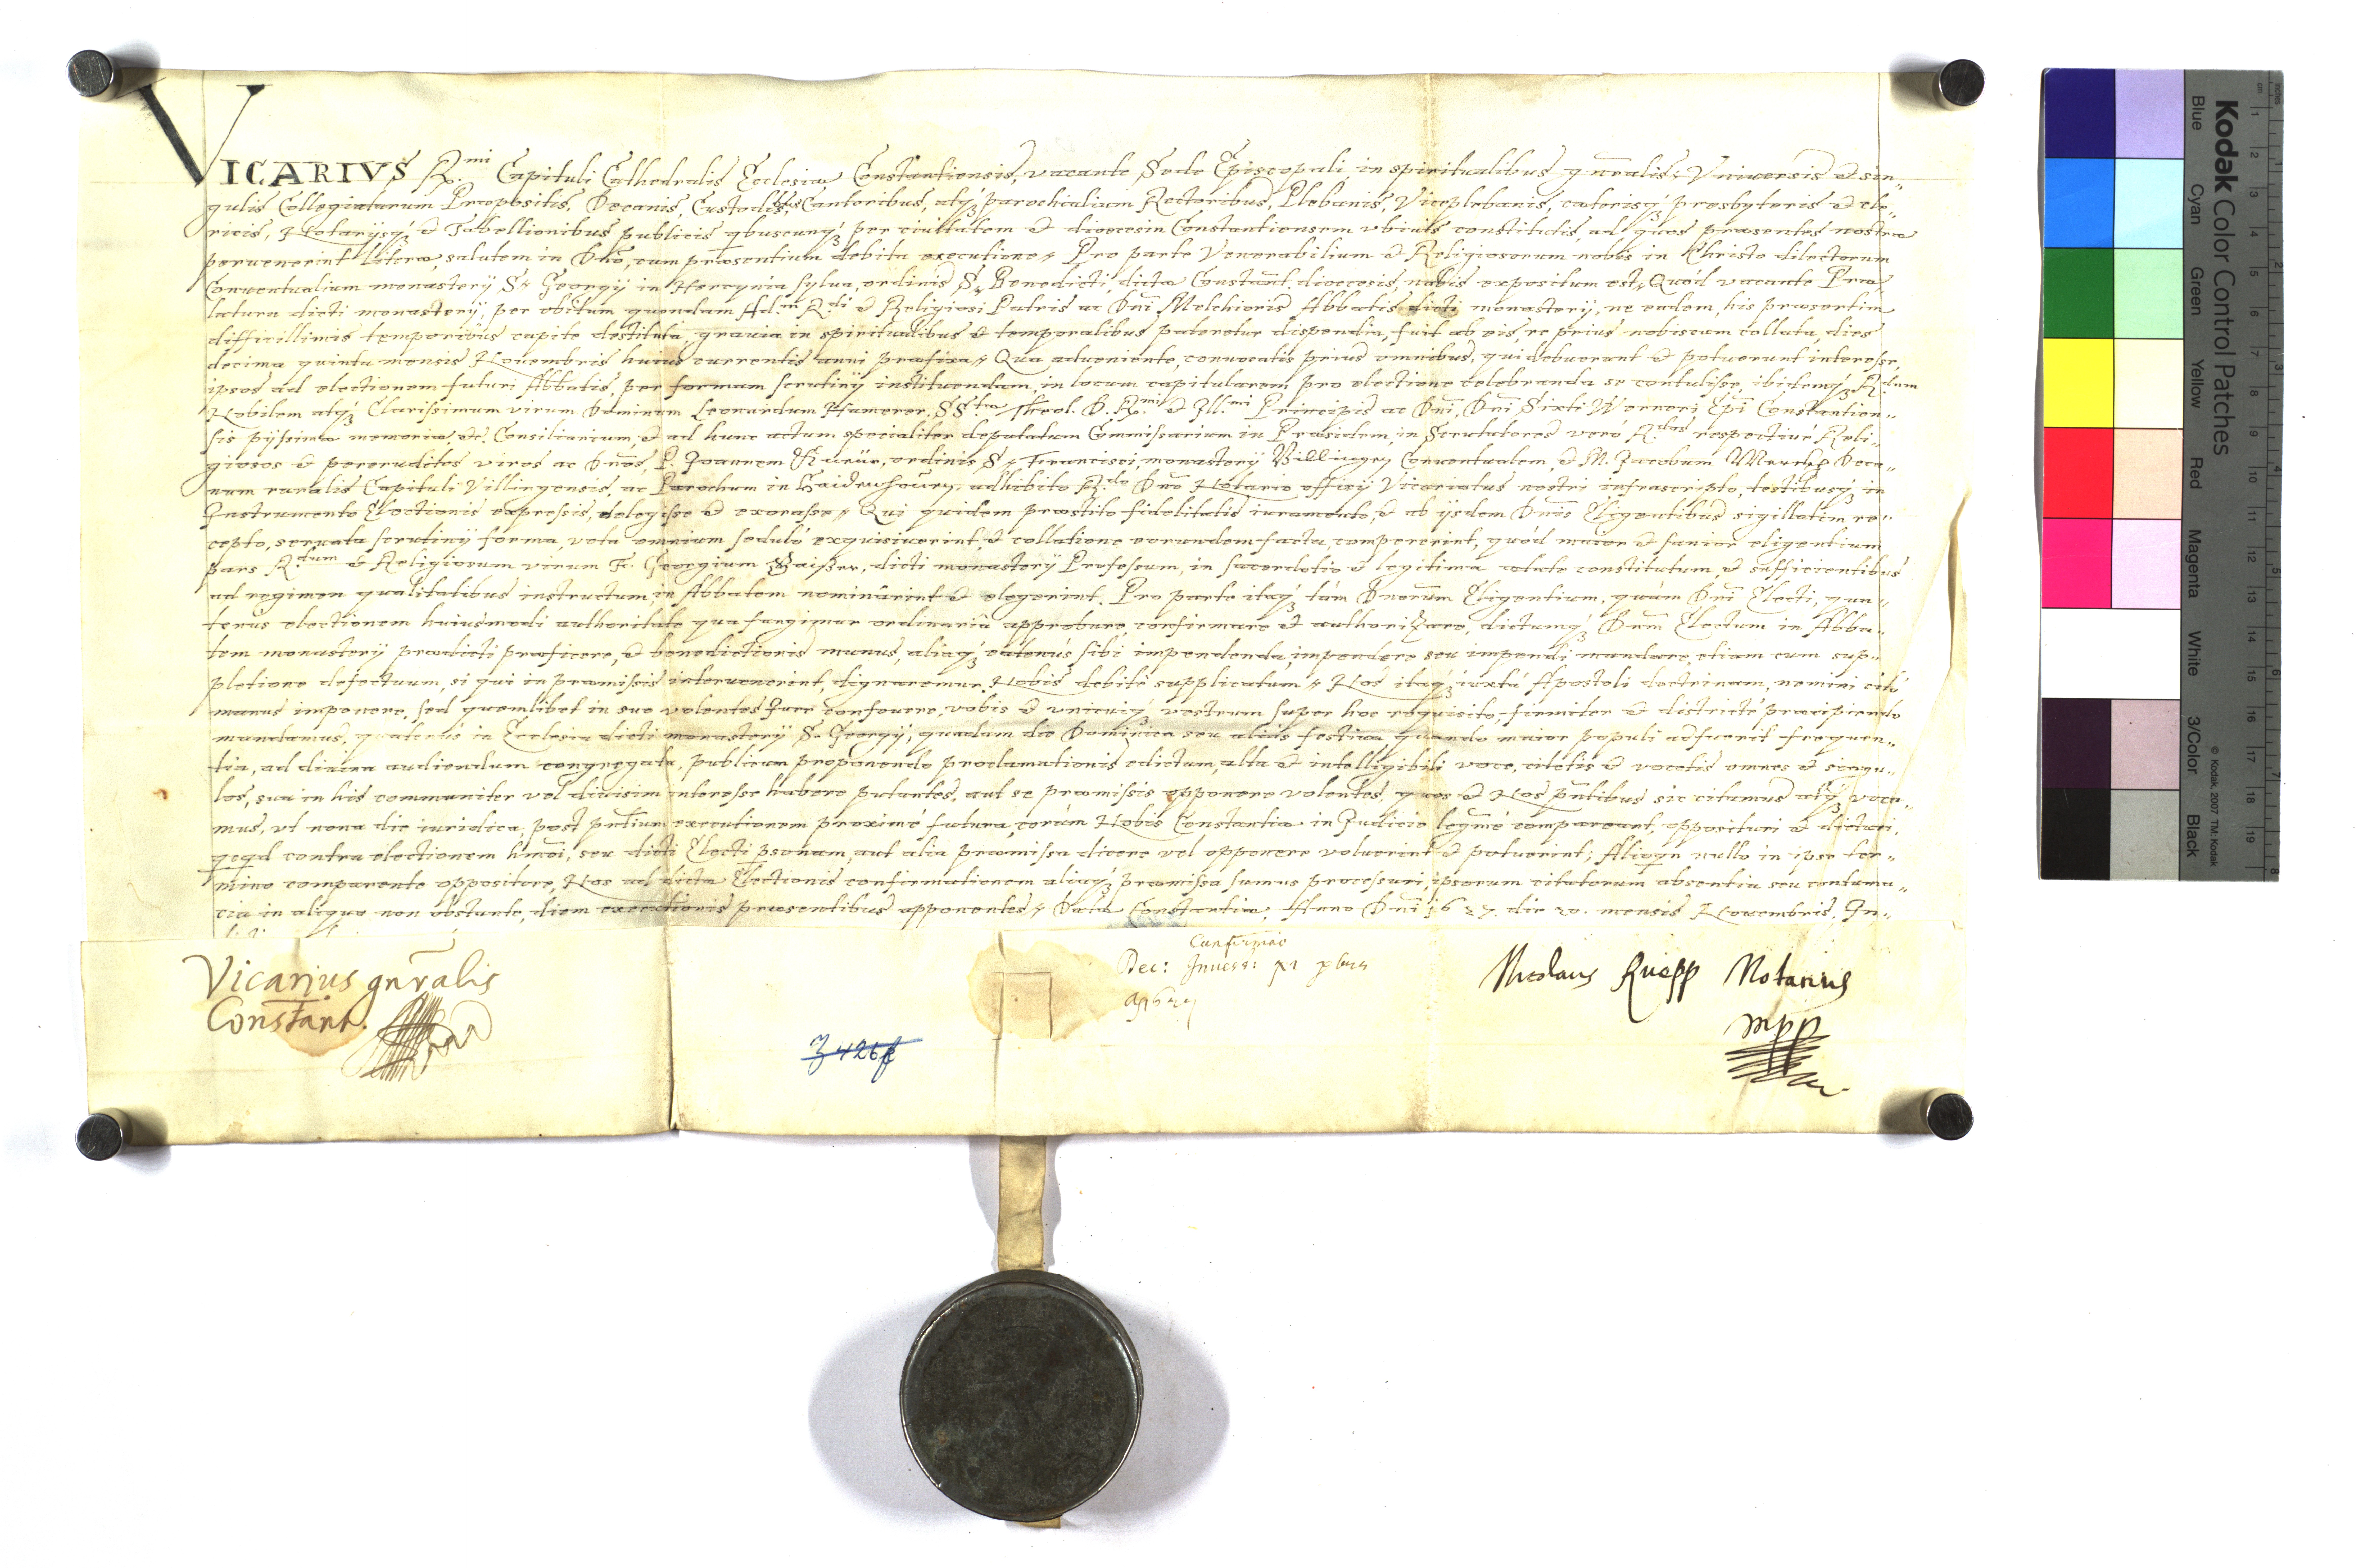 VICARIVS R.mi Capituli Cathedralis Ecclesiæ Constantiensis, vacante Sede Episcopali, in spiritualibus gn̄ralis: Vniversis & sin„
gulis Collegiatarum Præpositis, Decanis, Custodibus, Cantoribus, atq́ʒ parochialium Rectoribus, Plebanis, Viceplebanis, cæterisq́ʒ presbyteris & cle„
ricis, Notarijsq́ʒ & Tabellionibus publicis qbuscunq́ʒ per ciuitatem & dioecesin Constantiensem vbiuis constitutis, ad quos præsentes nostræ
peruenerint literæ, salutem in Dn̄o, cum præsentium debita executione. Pro parte Venerabilium & Religiosorum nobis in Christo dilectorum
Conuentualium monasterij S. Georgij in Hercynia sylua, ordinis S. Benedicti, dictæ Constant. dioecesis, nobis expositum est, Quòd vacante Præ„
latura dicti monasterij, per obitum quondam Ad.m R.di & Religiosi Patris ac Dn̄i Melchioris Abbatis dicti monasterij, ne eadem, his præsertim
difficillimis temporibus capite destituta, grauia in spiritualibus & temporalibus pateretur dispendia, fuit ab eis, re prius nobiscum collata, dies
decima quinta mensis Nouembris huius currentis anni præfixa. Qua adueniente, conuocatis prius omnibus, qui debuerant & potuerunt interesse,
ipsos ad electionem futuri Abbatis, per formam scrutinij instituendam, in locum capitularem pro electione celebranda se contulisse, ibidemq́ʒ R.dum
Nobilem atq́ʒ Clarissimum virum Dominum Leonardum Hamerer, SS.tæ Theol. D. R.mi & Ill.mi Principis ac Dn̄i, Dn̄i Sixti Werneri Epī Constantien„
sis pijssimæ memoriæ, etc. Consiliarium, & ad hunc actum specialiter deputatum Commissarium in Præsidem, in Scrutatores verò R.dos respectiuè Reli„
giosos & pereruditos viros ac Dn̄os, P. Joannem, ordinis S. Francisci, monasterij Villingen Conuentualem, & M. Jacobum Deca„
num ruralis Capituli Villingensis, ac Parochum in, adhibito R.do Dn̄o Notario officij Vicariatus nostri infrascripto, testibusq́ʒ in
Instrumento Electionis expressis, delegisse & exorasse. Qui quidem præstito fidelitatis iuramento, & ab ijsdem Dn̄is Eligentibus sigillatim re„
cepto, seruata scrutinij forma, vota omnium sedulò exquisiuerint, & collatione eorundem facta, compererint, quòd maior & sanior eligentium
pars R.dum & Religiosum virum F. Georgium Gaißer, dicti monasterij Professum, in sacerdotio & legitima ætate constitutum, & sufficientibus
ad regimen qualitatibus instructum, in Abbatem nominârint & elegerint. Pro parte itaq́ʒ tàm Dn̄orum Eligentium, quàm Dn̄i Electi, qua„
tenus electionem huiusmodi authoritate qua fungimur ordinariâ approbare, confirmare & authorizare, dictumq́ʒ Dn̄m Electum in Abba„
tem monasterij prædicti præficere, & benedictionis munus, aliaq́ʒ eatenus sibi impendenda, impendere seu impendi mandare, etiam cum sup„
pletione defectuum, si qui in præmissis interuenerint, dignaremur, Nobis debitè supplicatum. Nos itaq́ʒ iuxta Apostoli doctrinam, nemini citò
manus imponere, sed quemlibet in suo volentes Jure confouere, vobis & vnicuiq́ʒ vestrum super hoc requisito, firmiter & districtè præcipiendo
mandamus, quatenùs in Ecclesia dicti monasterij S. Georgij, quadam die Dominica seu aliàs festiua quando maior populi adfuerit frequen„
tia, ad diuina audiendum congregata, publicæ proponendo proclamationis edictum, alta & intelligibili voce, citetis & vocetis omnes & singu„
los, sua in his communiter vel diuisim interesse habere putantes, aut se præmissis opponere volentes, quos & Nos pn̄tibus sic citamus atq́ʒ voca„
mus, vt nona die iuridica, post pn̄tium executionem proximè futura, coràm Nobis Constantiæ in Judicio legmè compareant, opposituri & dicturi,
qcqd contra electionem hmōi, seu dicti Electi psonam, aut alia præmissa dicere vel opponere voluerint & potuerint; Alioqn nullo in ipso ter„
mino comparente oppositore, Nos ad dictæ Electionis confirmationem aliaq́ʒ præmissa sumus processuri, ipsorum citatorum absentia seu contuma„
cia in aliquo non obstante, diem executionis præsentibus apponentes. Datæ Constantiæ, Anno Dn̄i 1627. die 20. mensis Nouembris, In„
Vicarius gn̄ralis
Constant.
Confirmao
Z 426f
Nicolaus Ruepp Notarius
mpp
Kodak Color Control Patches
Blue Cyan Green Yellow Red Magenta White 3/Color Black
© Kodak, 2007 TM: Kodak
cm 1 2 3 4 5 6 7 8 9 10 11 12 13 14 15 16 17 18 19
inches 1 2 3 4 5 6 7 8